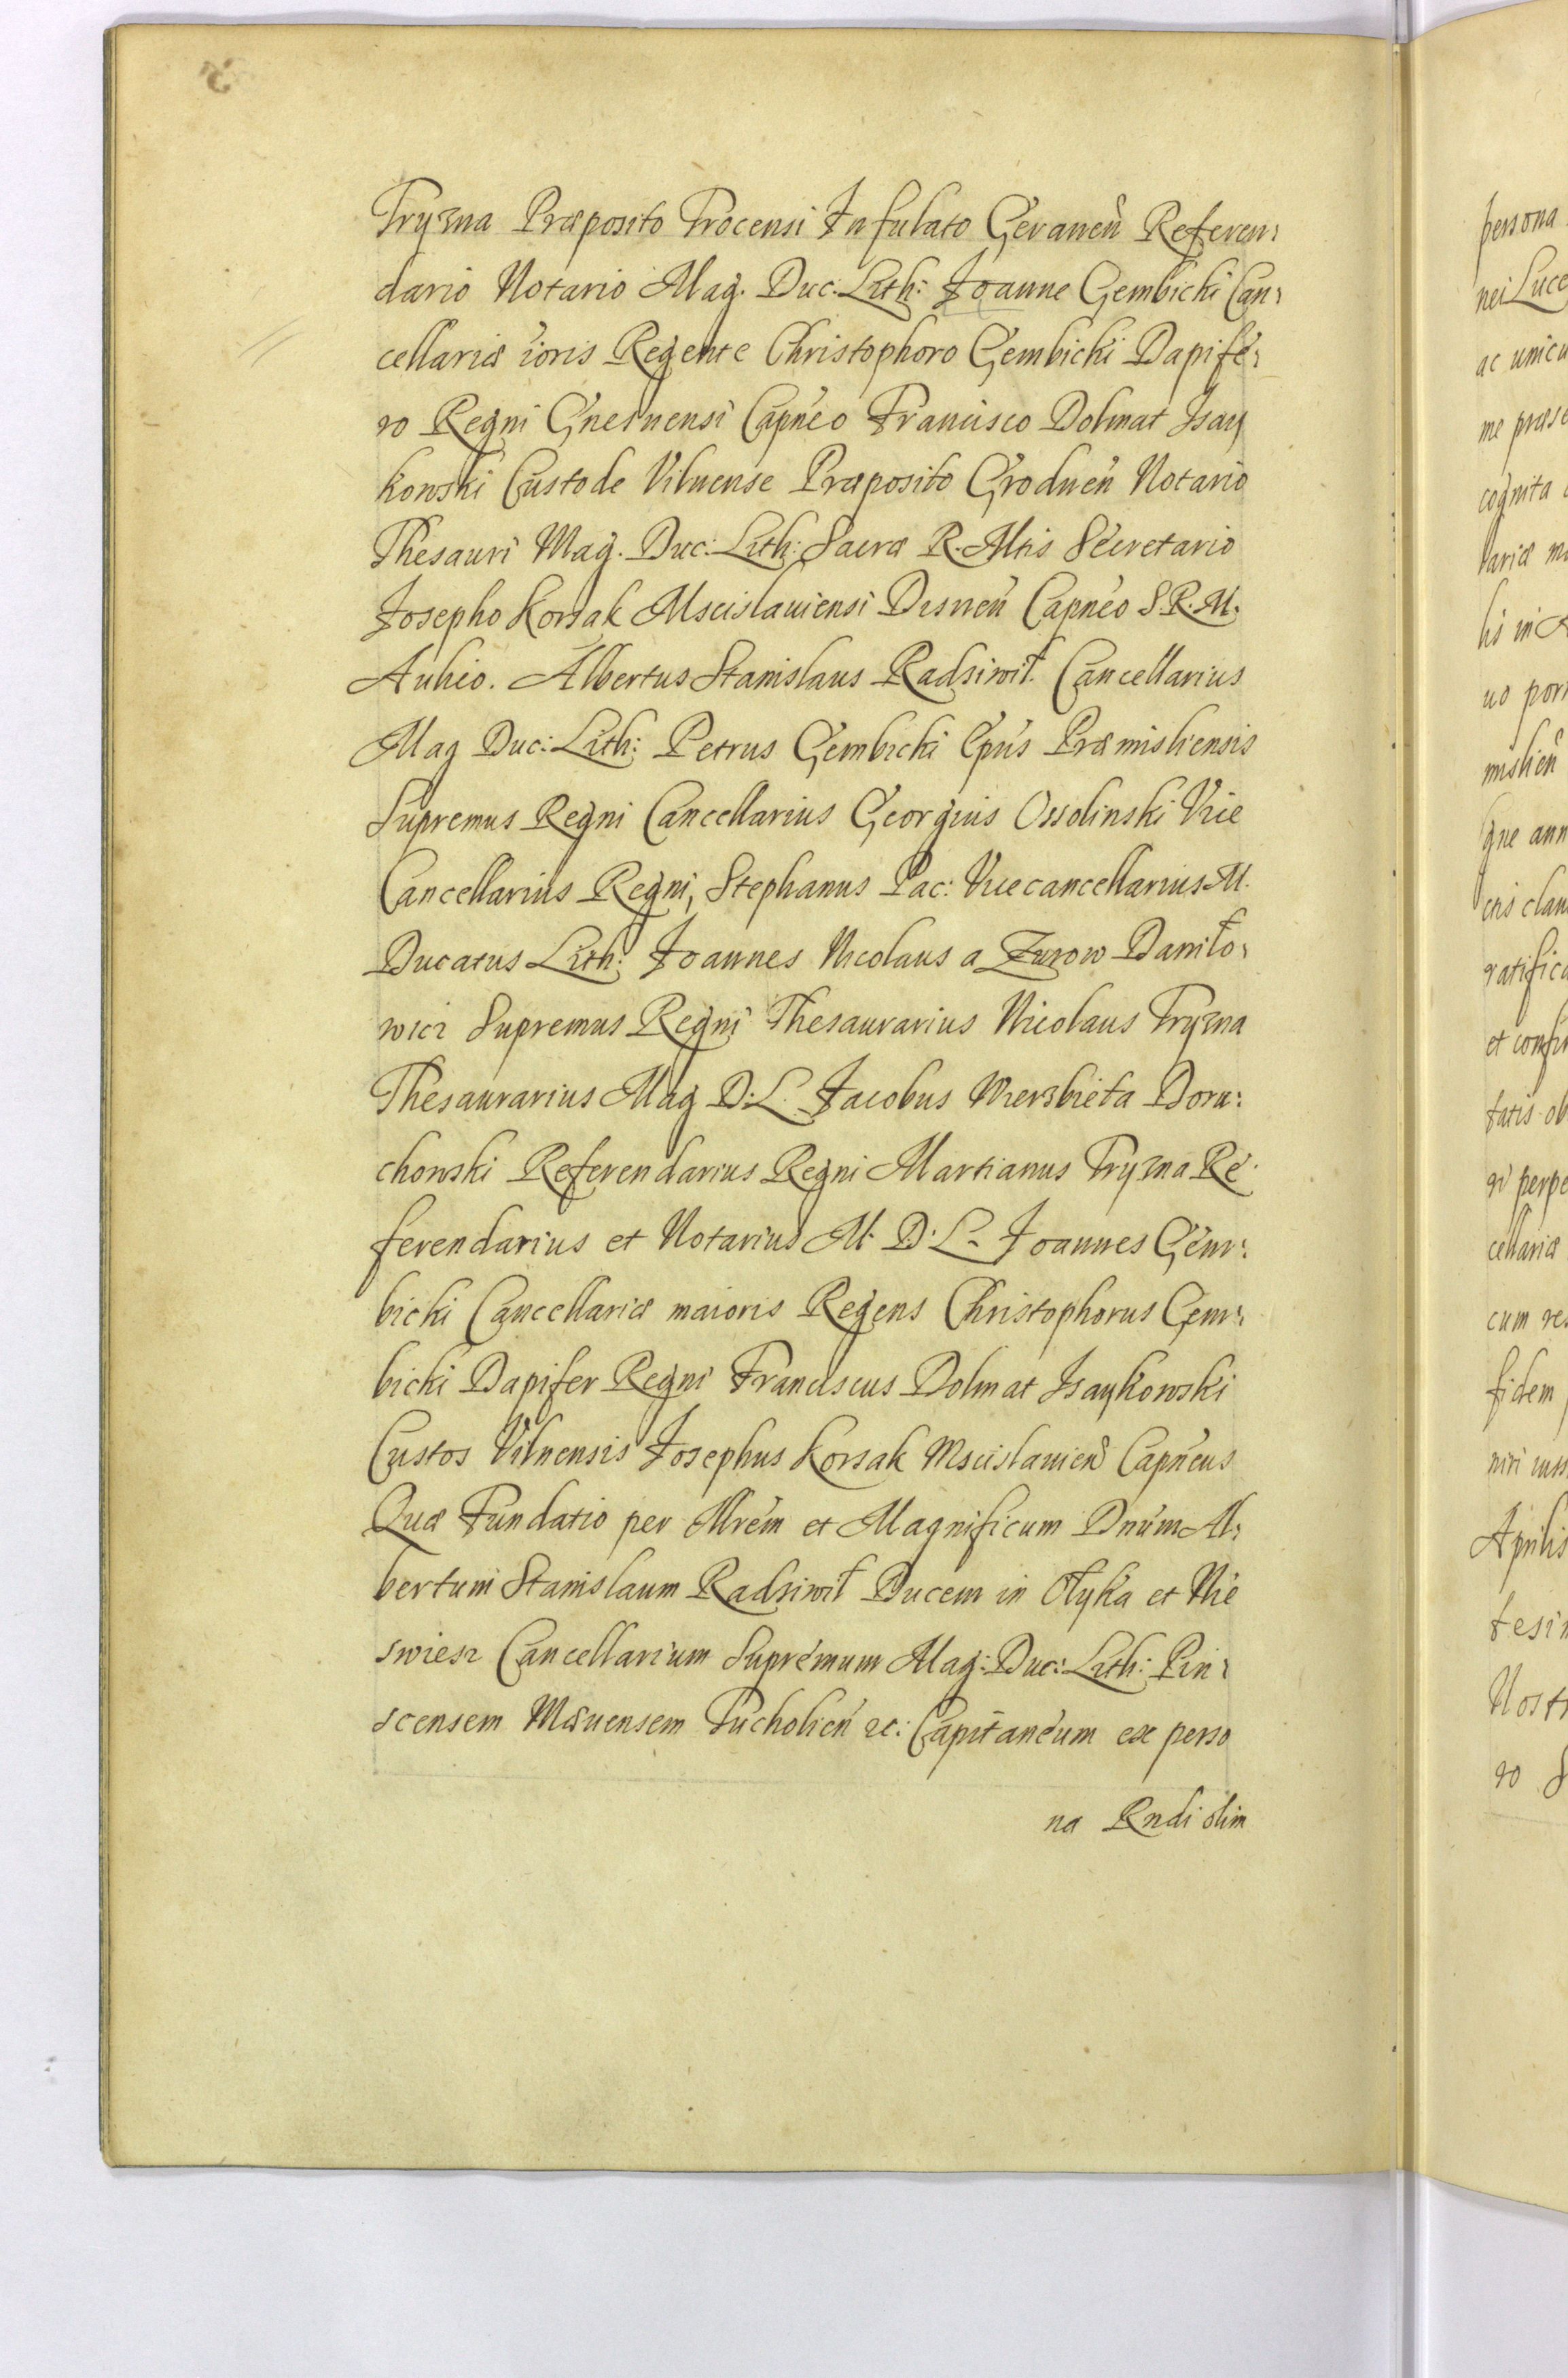 Tryzna Præposito Trocensi Infulato Geranen̄ Referen:
dario Notario Mag. Duc: Lith: Joanne Gembicki Can:
cellariæ ioris Regente Christophoro Gembicki Dapife:
ro Regni Gnesnensi Capnéo Francisco Dolmat Isay
kowski Custode Vilnense Præposito Grodnen̄ Notario
Thesauri Mag. Duc: Lith: Sacræ R. Mtis Secretario
Josepho Korsak Mscislaviensi Disnen̄ Capnéo S. R. M.
Aulico. Albertus Stanislaus Radziwił. Cancellarius
Mag Duc: Lith: Petrus Gembicki Epús Præmisliensis
Supremus Regni Cancellarius Georgius Ossolinski Vice
Cancellarius Regni, Stephanus Pac: Vicecancellarius M.
Ducatus Lith: Joannes Nicolaus a Zurow Daniło:
wicz Supremus Regni Thesaurarius Nicolaus Tryzna
Thesaurarius Mag D: L. Jacobus Wierzbieta Doru:
chowski Referendarius Regni Martianus Tryzna Re
ferendarius et Notarius M. D. L. Joannes Gem:
bicki Cancellariæ maioris Regens Christophorus Gem:
bicki Dapifer Regni Franciscus Dolmat Isaykowski
Custos Vilnensis Josephus Korsak Mscislavien̄ Capnéus
Quæ Fundatio per Illrém et Magnificum Dnúm Al:
bertum Stanislaum Radziwił Ducem in Ołyka et Nie
swiesz Cancellarium Supremum Mag: Duc: Lith: Pin:
scensem Mævensem Tucholien̄ &c: Capitaneum ex perso
na Rndi olim
persona
nei Luce
ac unicu
me præse
cognita
lariæ m
lis in
uo por
mislien̄
que ann
cris clau
ratifica
et confir
tatis ob
ri perpe
cellariæ
cum re
fidem
niri
Aprilis
tesi
Nostr
ro S